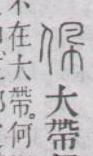 佩大帶
不在大帶。何